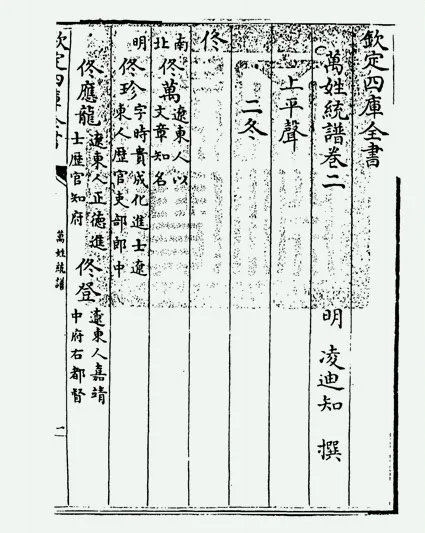 欽定四庫全書
萬姓統譜卷二
明 凌迪知 撰
上平聲
二冬
佟
南北
佟萬遼東人以文章知名
明
佟珍字時貴成化進士遼東人歷官吏部郎中
佟應龍遼東人正德進士歷官知府
佟登遼東人嘉靖中府右都督
欽定四庫全書
萬姓統譜
一